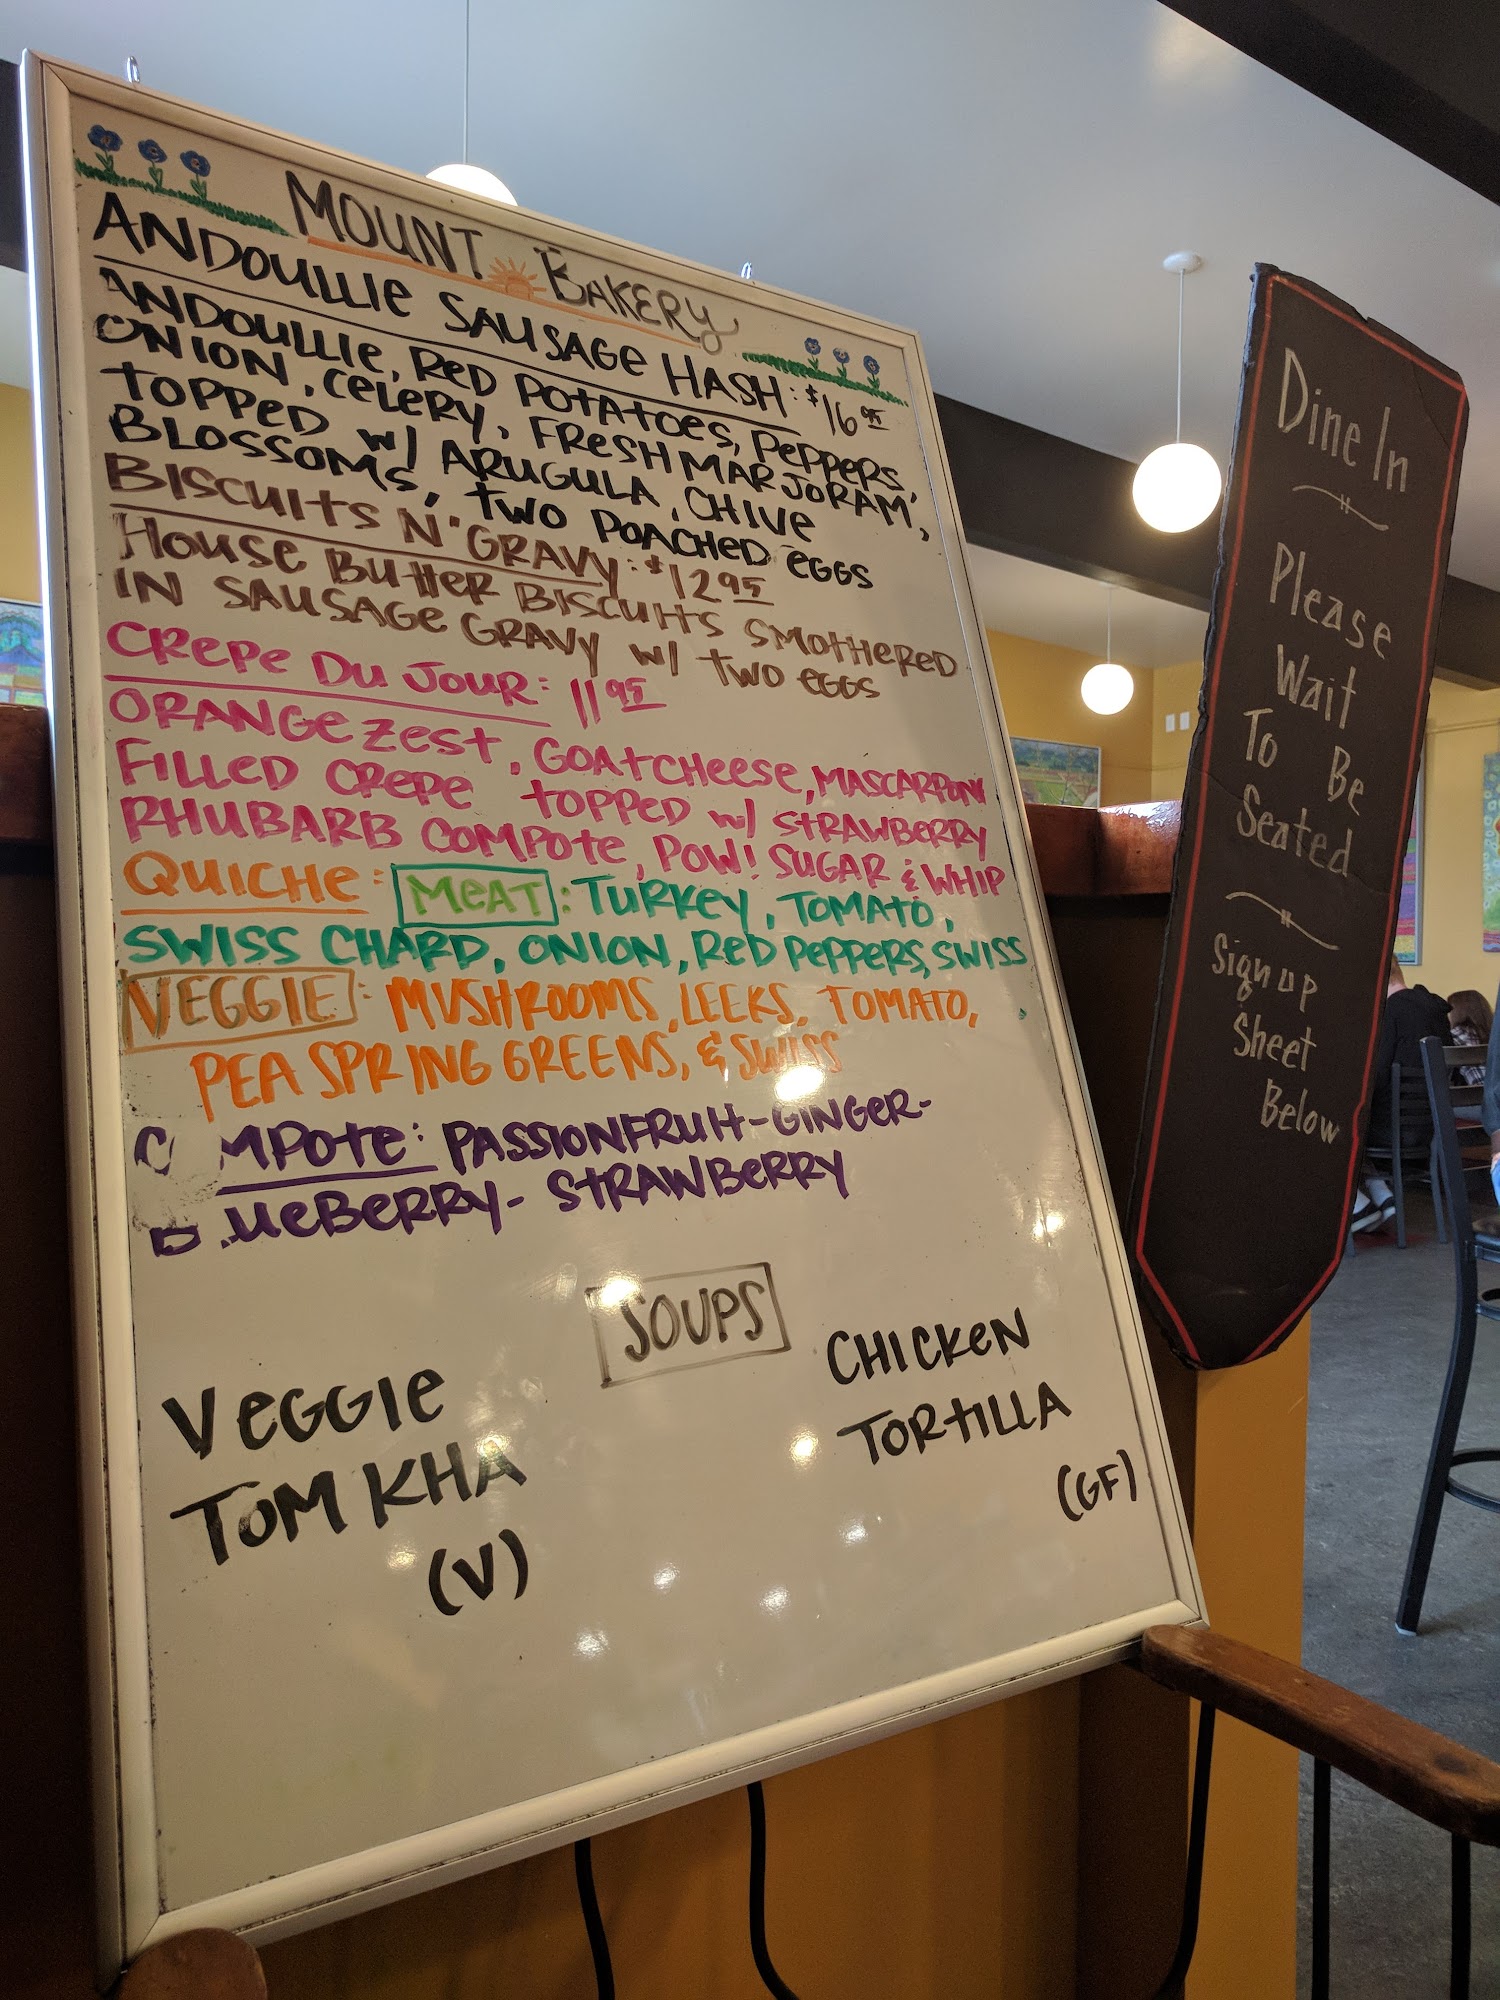 MOUNT BAKERY
ANDOUILLE SAUSAGE HASH: $16 95
ANDOUILLE, RED POTATOES, PEPPERS,
ONION, CELERY, FRESH MARJORAM,
TOPPED w/ ARUGULA, CHIVE
BLOSSOMS, TWO POACHED EGGS
BISCUITS N' GRAVY: $12 95
HOUSE BUTTER BISCUITS SMOTHERED
IN SAUSAGE GRAVY w/ TWO EGGS
CREPE DU JOUR: 11 95
ORANGE ZEST, GOAT CHEESE, MASCARPONE
FILLED CREPE TOPPED w/ STRAWBERRY
RHUBARB COMPOTE, POW! SUGAR & WHIP
QUICHE: MEAT: TURKEY, TOMATO,
SWISS CHARD, ONION, RED PEPPERS, SWISS
VEGGIE: MUSHROOMS, LEEKS, TOMATO,
PEA SPRING GREENS, & SWISS
COMPOTE: PASSIONFRUIT-GINGER-
BLUEBERRY-STRAWBERRY
SOUPS
VEGGIE
TOM KHA
(V)
CHICKEN
TORTILLA
(GF)
Dine In
Please
Wait
To Be
Seated
Sign up
Sheet
Below